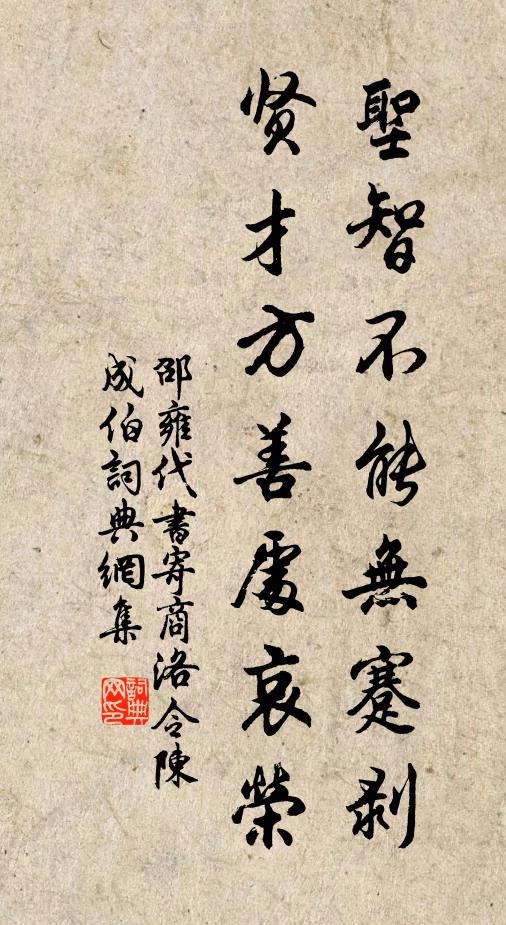 聖智不能無蹇剥
贤才方善處哀榮
邵雍代書寄商洛令陳
成伯詞典網集
詞典
网印